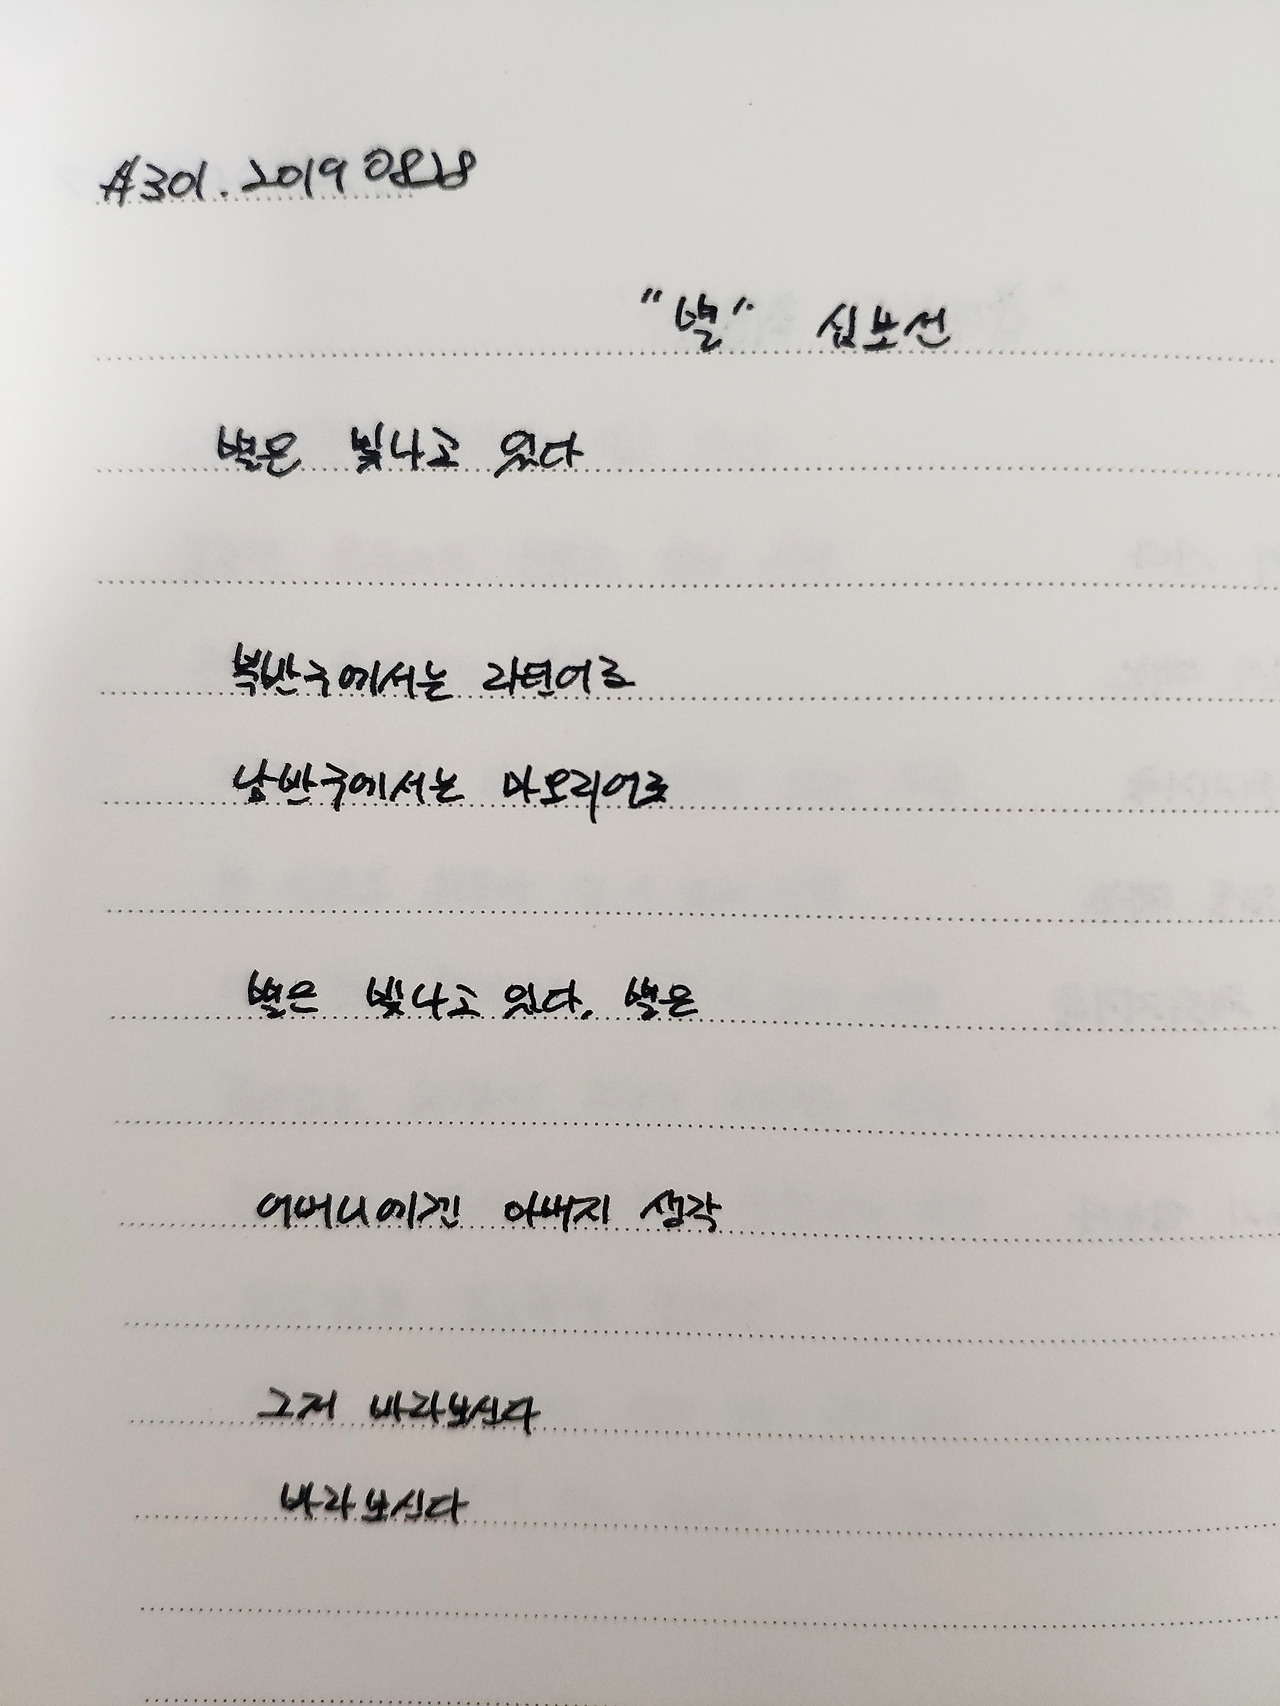 #301. 2019 0828
"별" 심보선
별은 빛나고 있다
북반구에서는 라틴어로
남반구에서는 마오리어로
별은 빛나고 있다. 별은
어머니에겐 아버지 생각
그저 바라보신다
바라보신다